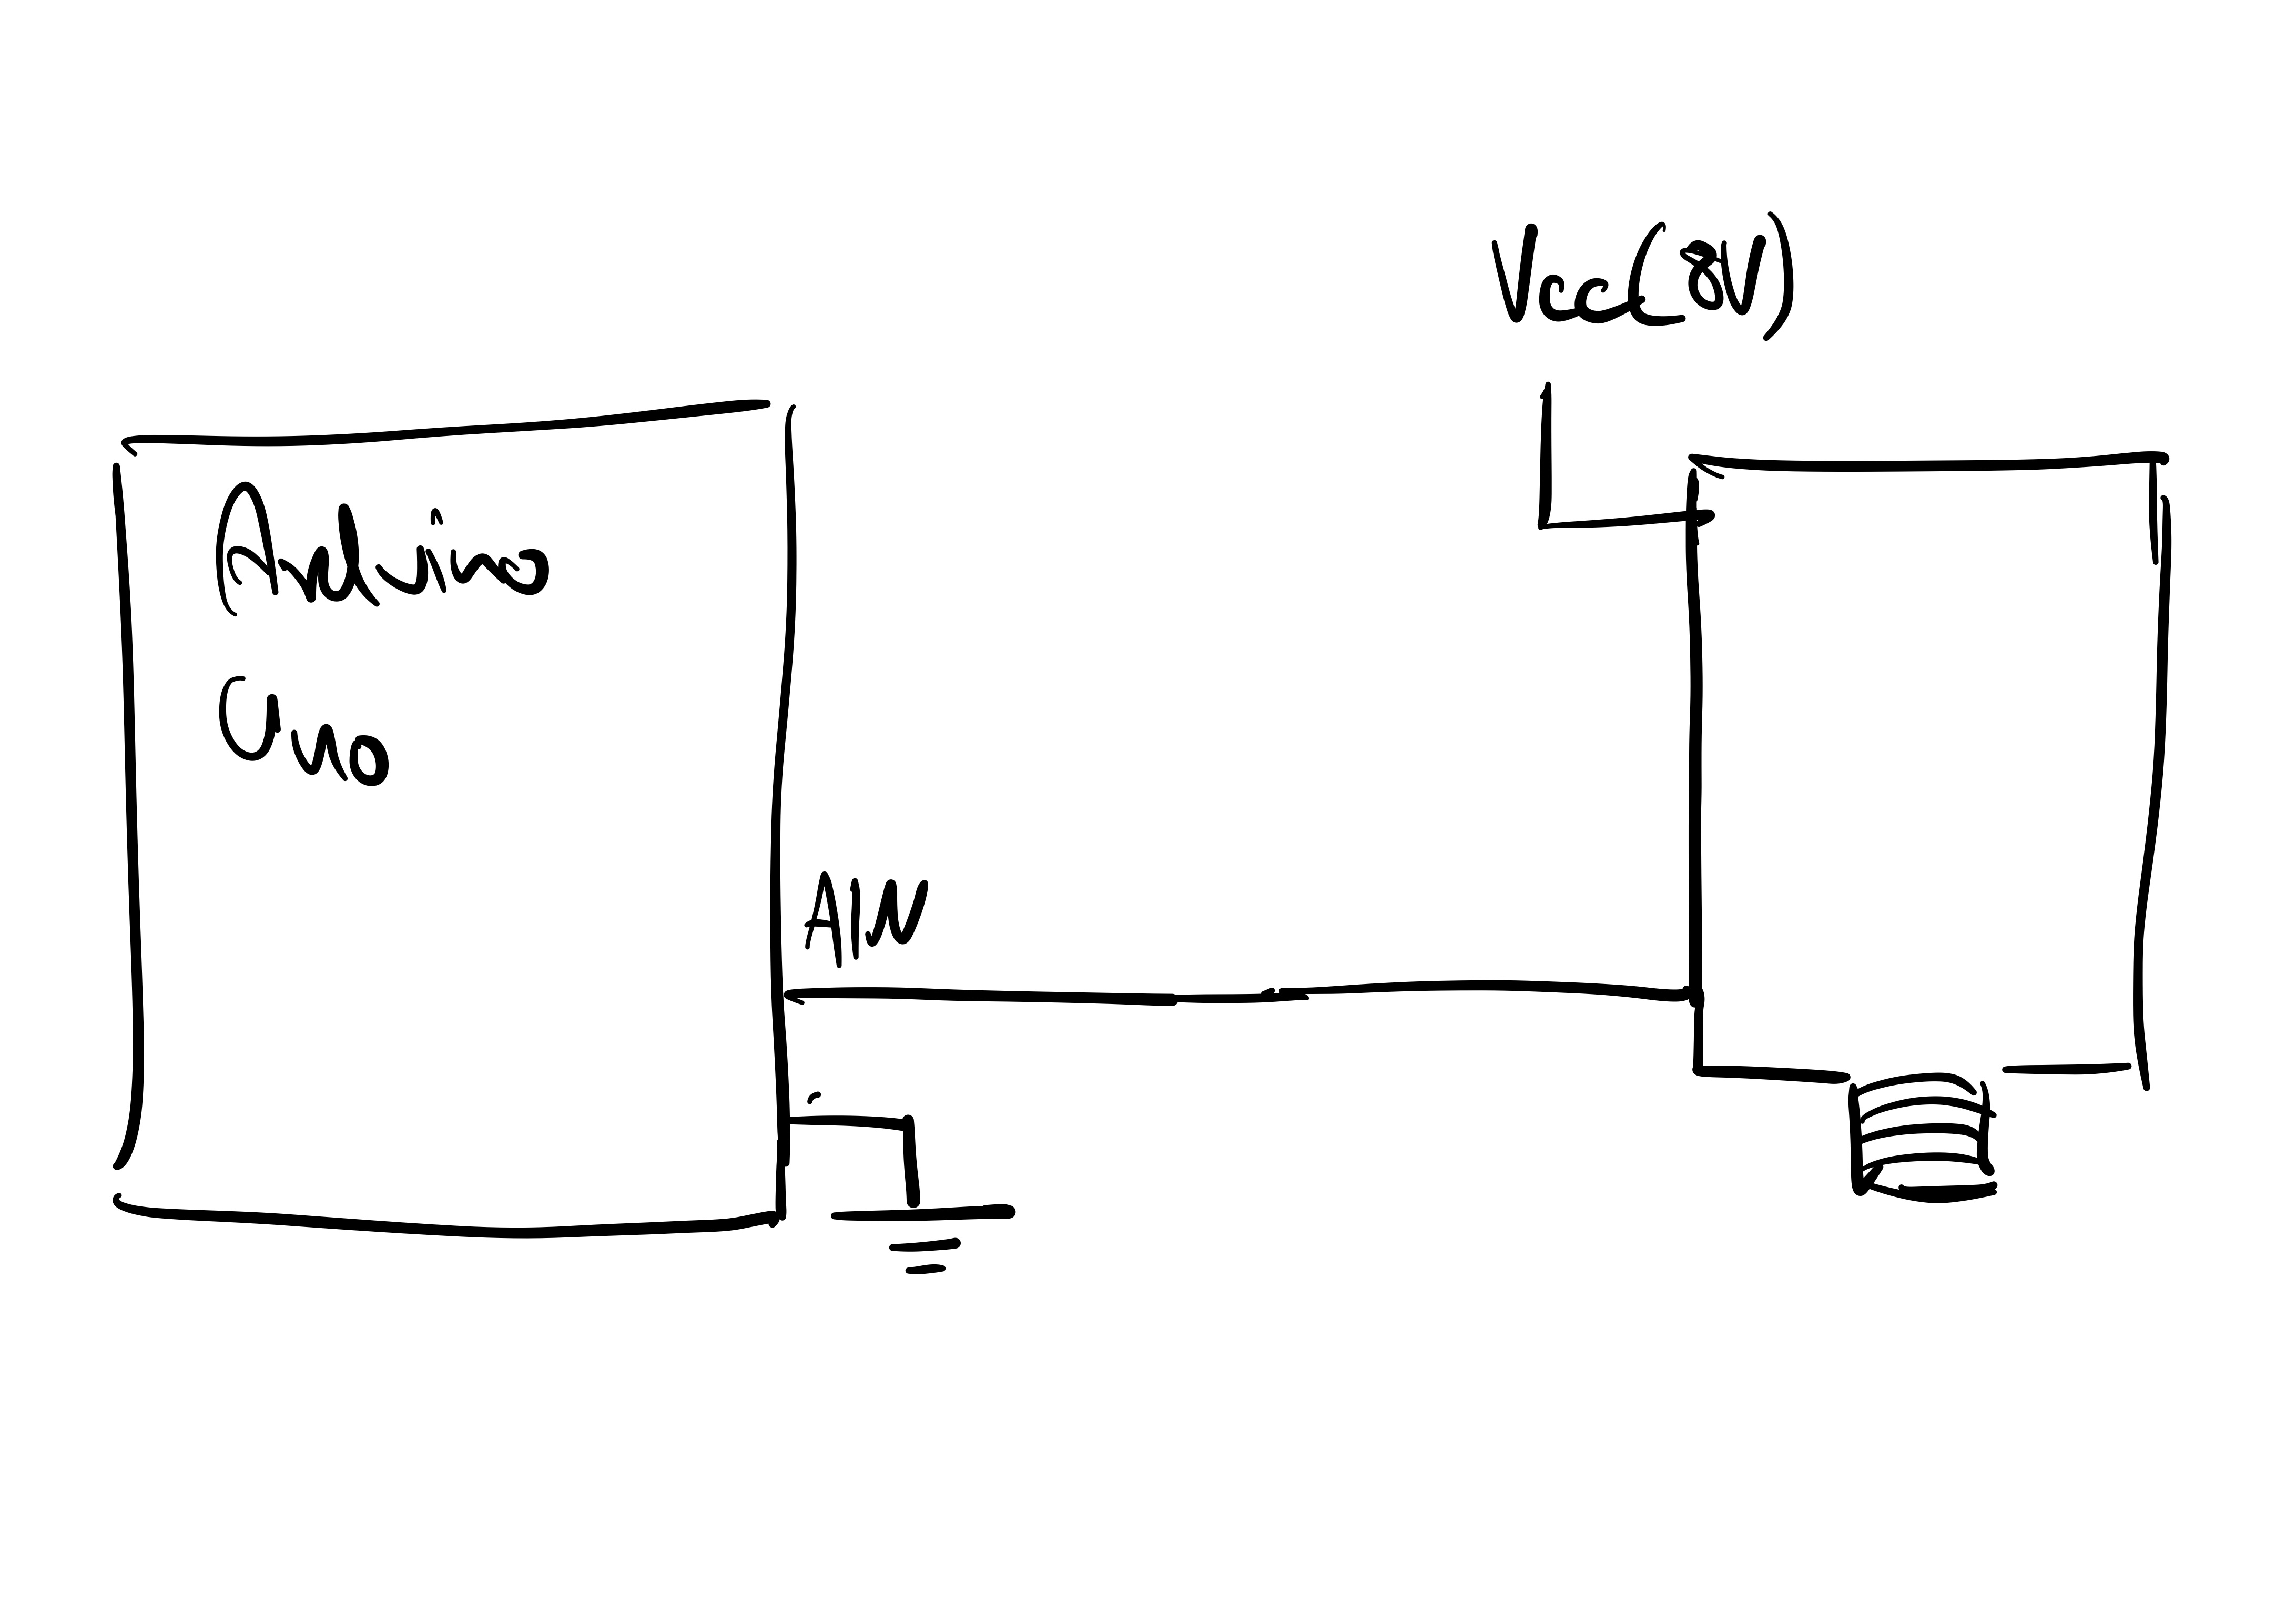 Vcc(8V)
Arduino
Uno
AIN